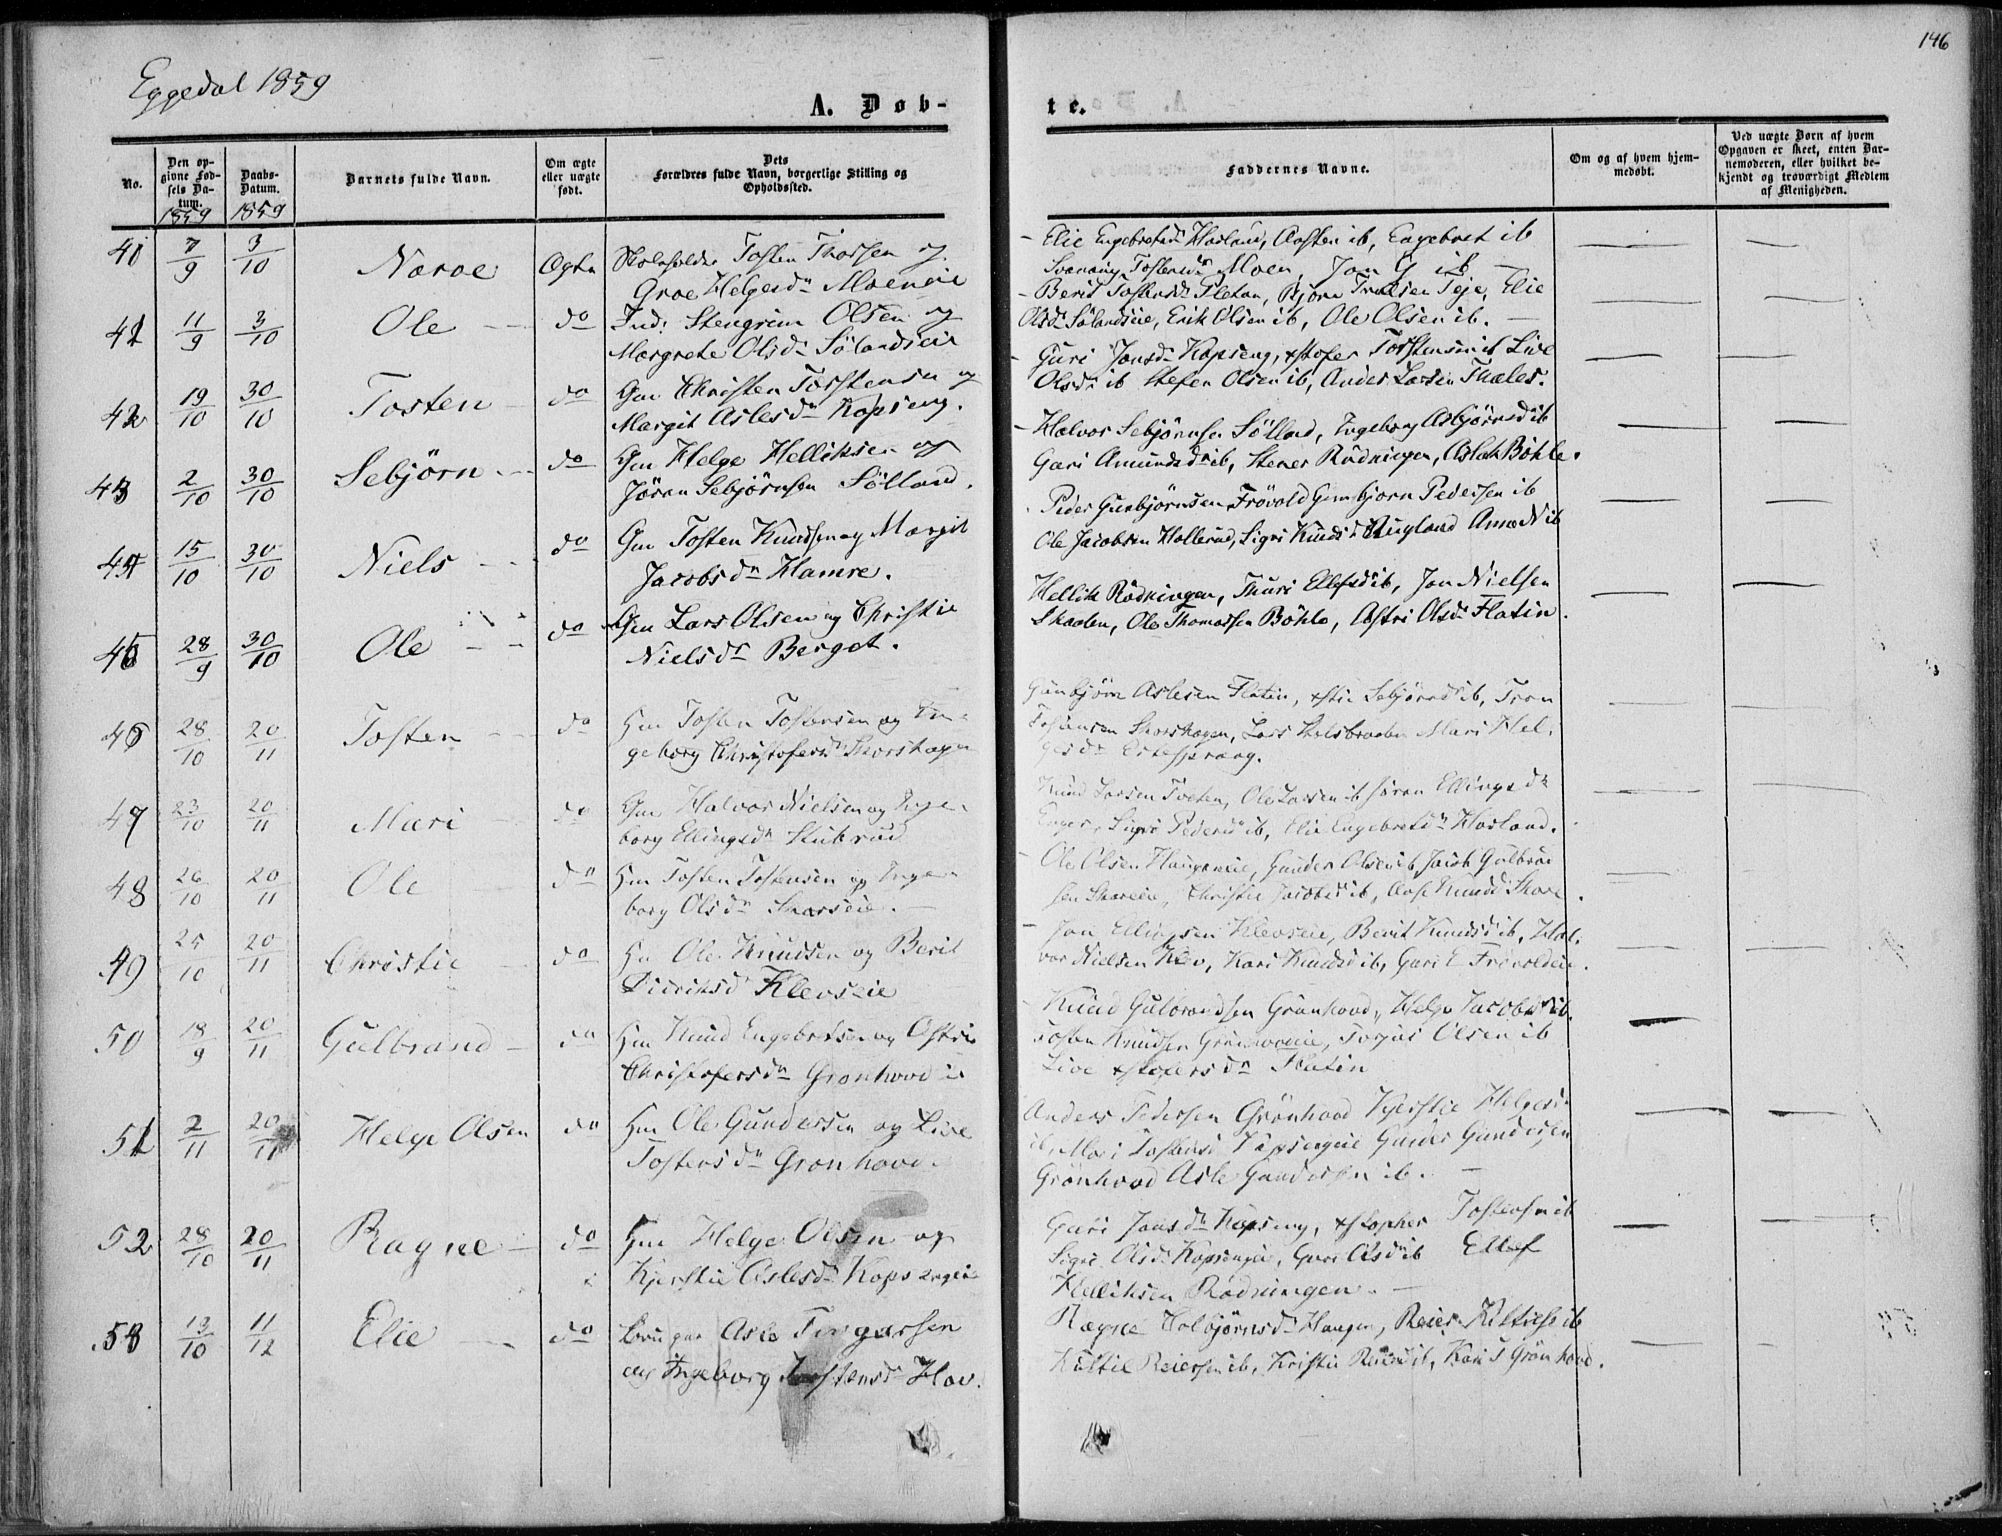 146
Eggedal 1859
A. Døb-
te.
No.
Den op-
givne Fød-
sels Da-
tum.
1859
Daabs-
Datum.
1859
Barnets fulde Navn.
Om ægte
eller uægte
født.
Dets
Forældres fulde Navn, borgerlige Stilling og
Opholdssted.
Faddernes Navne.
Om og af hvem hjem-
medøbt.
Ved uægte Børn af hvem
Opgaven er skeet, enten Bar-
nemoderen, eller hvilket be-
kjendt og troværdigt Medlem
af Menigheden.
40 7/9 3/10 Naroe Ægte Tosten Thorsen og
Groe Helgesdr Moeneie
Elie Engebretsdr Haslund, Aosten ib, Engebret ib
Svanaug Tostensdr Moen, Jon G ib
41 11/9 3/10 Ole do Ind: Stengrim Olsen og
Margrete Olsdr Sølandseie
Berit Tostensdr Fleten, Bjørn Truelsen Teje, Elie
Olsdr Sølandseie, Erik Olsen ib, Ole Olsen ib.
42 19/10 30/10 Tosten do Gm Christen Torstensen og
Margit Aslesdr Kopseng.
Guri Jonsdr Kopseng, Torstensen ib Live
Olsdr ib Stefen Olsen ib, Anders Larsen Thales.
43 2/10 30/10 Sebjørn do Gm Helge Helliksen og
Jøran Sebjørnsen Sølland.
Halvor Sebjørnsen Sølland, Ingeborg Asbjørnsd ib
Gari Amundsdr ib, Stener Rødningen, Aslak Bøhle.
44 15/10 30/10 Niels do Gm Tosten Knudsen og Margit
Jacobsdr Hamre.
Peder Gunbjørnsen Frøvold Gunbjorn Pedersen ib
Ole Jacobsen Hollerud, Sigri Knudsdr Rugland Anne N ib
45 28/9 30/10 Ole do Gm Lars Olsen og Christie
Nielsdr Berget.
Hellik Rødningen, Thuri Ellefsd ib, Jon Nielsen
Skaalen, Ole Thomassen Bøhle, Astri Olsdr Flatin.
46 28/10 20/11 Tosten do Gm Tosten Tostensen og In-
geborg Christofersdr Skorshagen
Gunbjørn Aslesen Flatin, Sebjørnsd ib, Tron
Skorshagen, Lars Mari Hel-
gesdr
47 23/10 20/11 Mari do Gm Halvor Nielsen og Inge-
borg Ellingsdr Stubrud
Knud Larsen Tveten, Ole Larsen ib Jøran Ellingsdr
Enger, Sigri Pedersd ib, Elie Engebretsdr Haslund.
48 26/10 20/11 Ole do Gm Tosten Tostensen og Inge-
borg Olsdr Skareeie.
Ole Olsen Haugeneie, Gunder Olsen ib Jacob Gulbran-
sen Skareeie, Christie Jacobsd ib, Knudsd Skare
49 25/10 20/11 Christie do Gm Ole Knudsen og Berit
Didriksd Klevseie
Jon Ellingsen Klevseie, Berit Knudsd ib, Hal-
vor Nielsen Klev, Kari Knudsd ib, Guri E Frøvoldeie.
50 18/9 20/11 Gulbrand do Gm Knud Engebretsen og Astri
Christofersdr Grønhovd
Knud Gulbrandsen Grønhovd, Helge Jacobsen ib.
Tosten Knudsen Grønhovdeie, Torjus Olsen ib
Live Flatin
51 2/11 20/11 Helge Olsen do Gm Ole Gundersen og Live
Tostensdr Grønhovd.
Anders Pedersen Grønhovd Kjerstie Helgesdr
ib, Mari Tostensd Kopsengeie Gunder Gundersen
Grønhovd Asle Gundersen ib.
52 28/10 20/11 Ragne do Gm Helge Olsen og
Kjerstie Aslesdr Kopsengeie
Guri Jonsdr Kopseng, Tostensen ib
Sigri Olsdr Kopsengeie, Guri Olsd ib Ellef
Helliksen Rødningen.
53 13/10 11/12 Elie do Bruger Asle Torgersen
og Ingeborg Tostensdr Hov.
Ragne Halbjørnsdr Haugen, Reier Kittilss ib
Kittil Reiersen ib, Kristie Reiersd ib, Kari T Grønhovd.